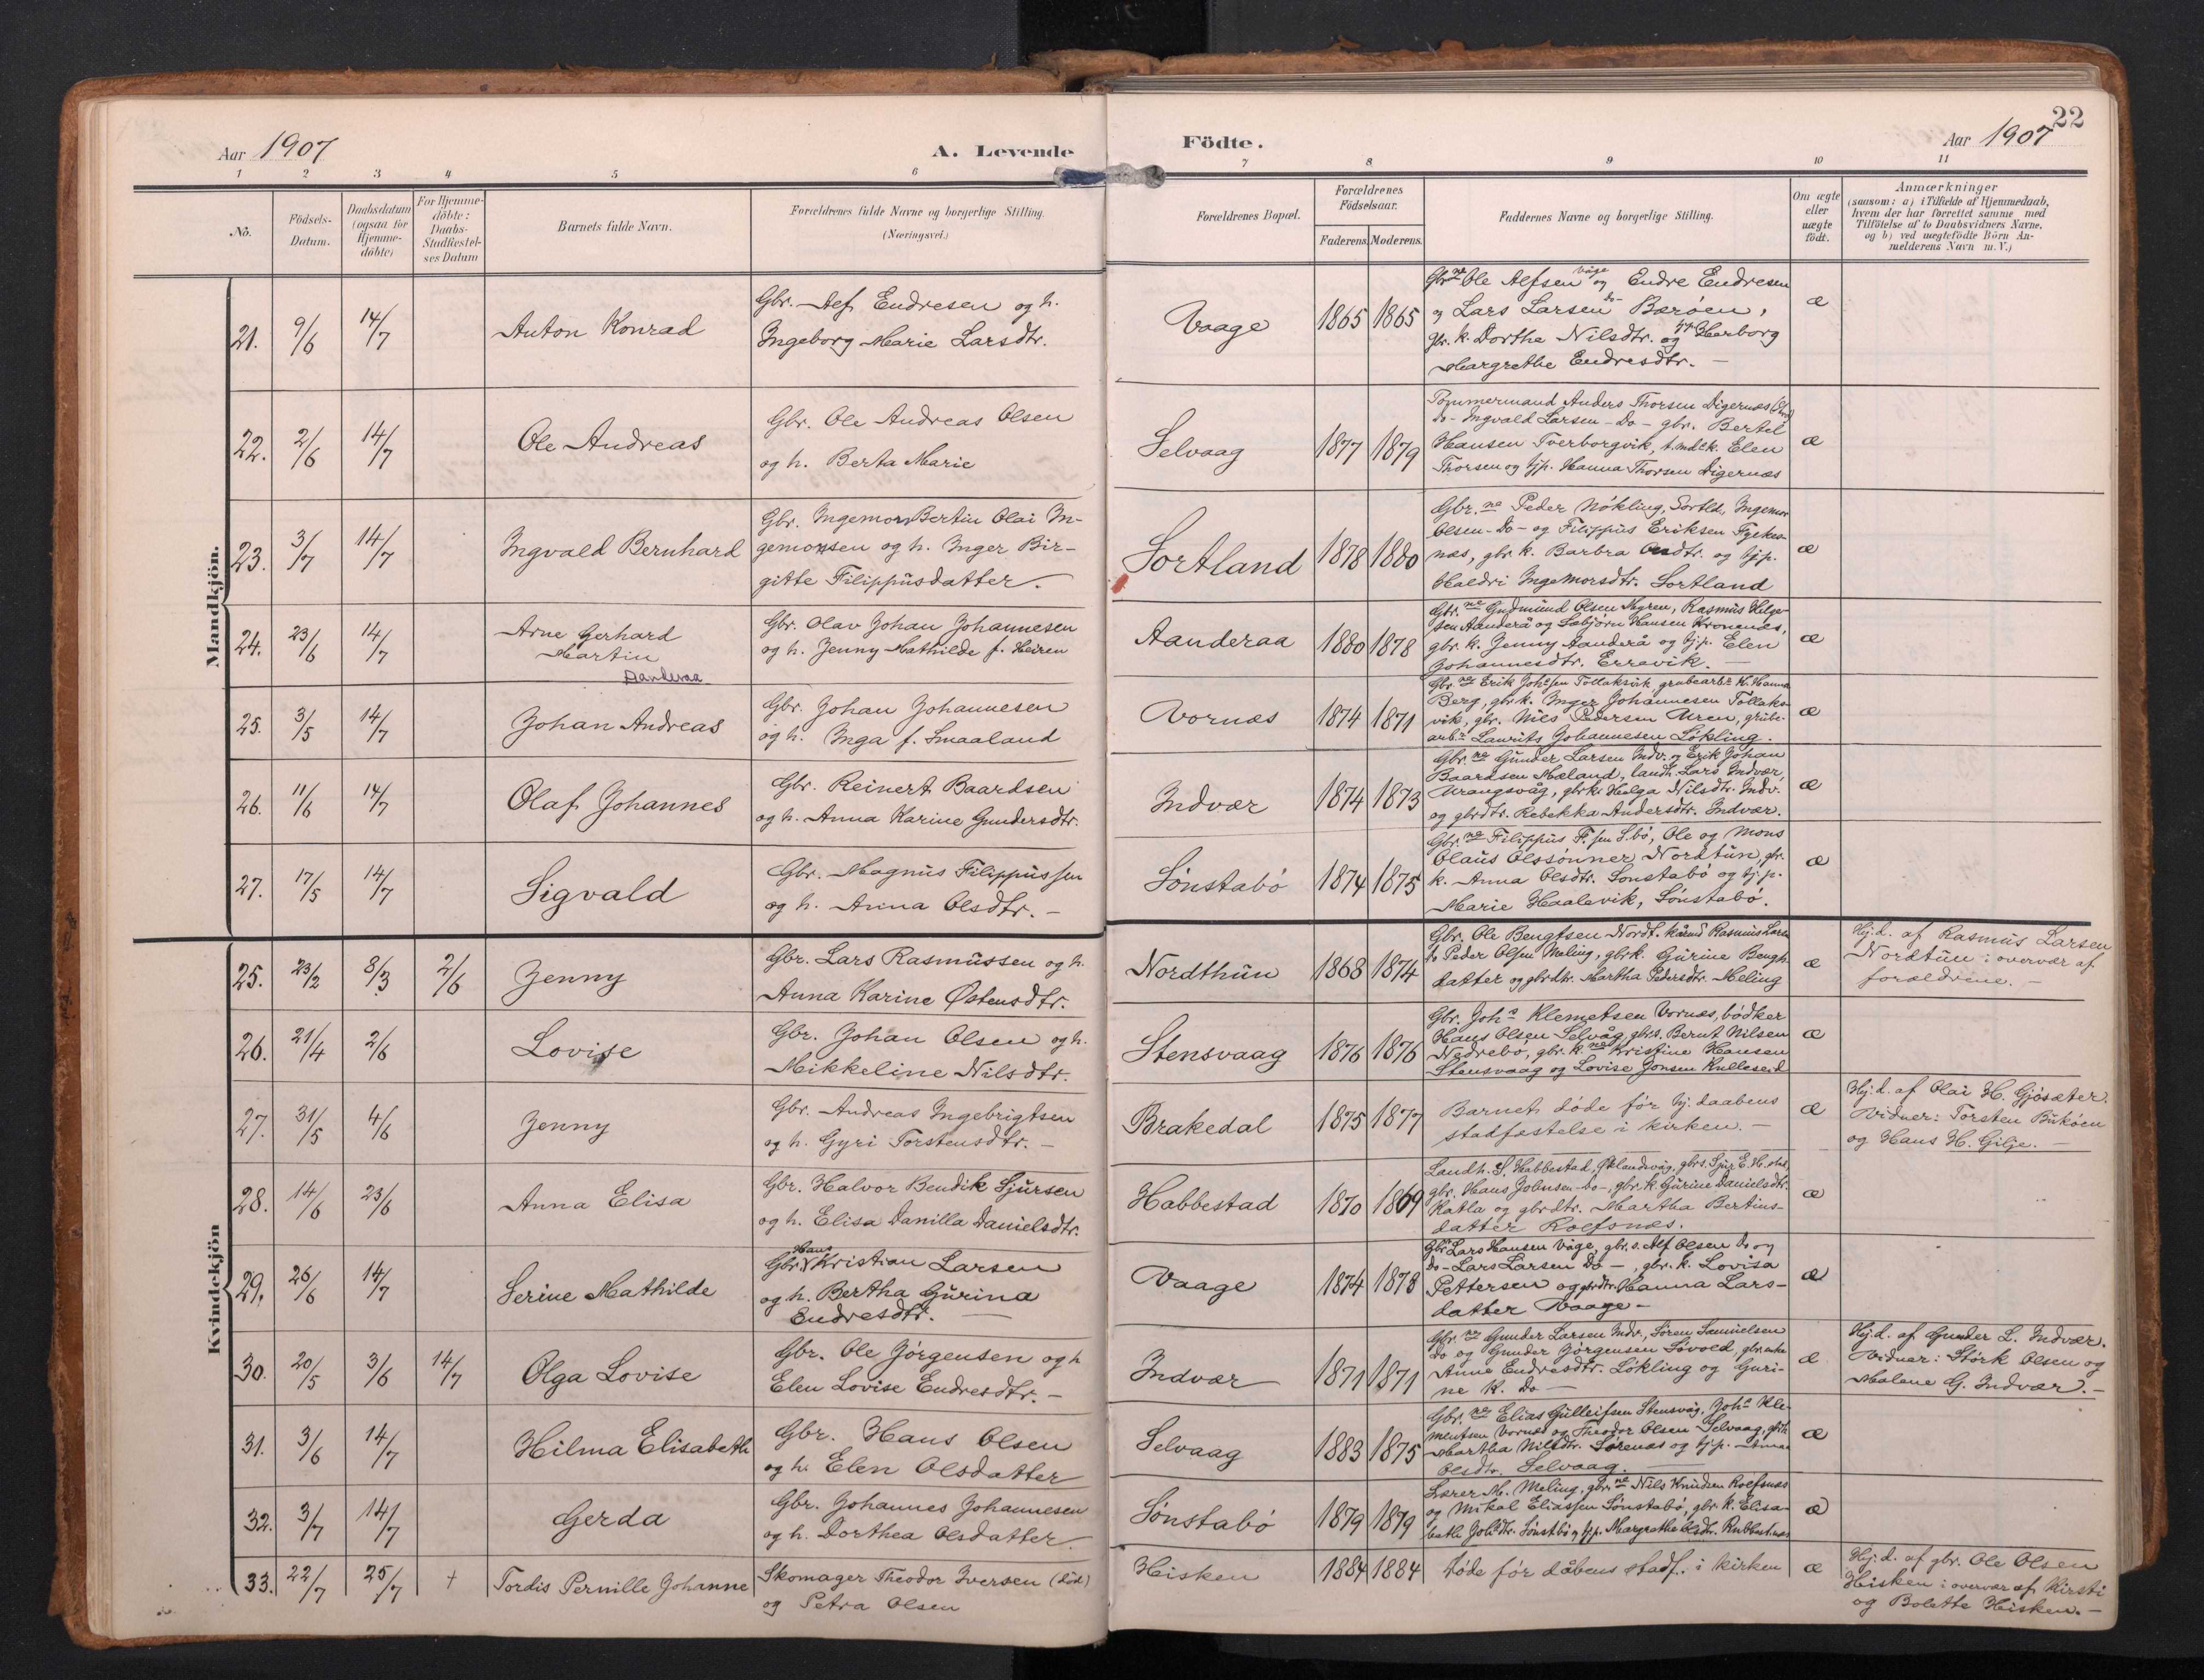 22
Aar 1907
A. Levende
Födte.
Aar 1907
1 2 3 4 5 6 7 8 9 10 11
No.
Födsels-
Datum.
Daabsdatum
(ogsaa for
Hjemme-
döbte)
For Hjemme-
döbte:
Daabs-
Stadfæstel-
ses Datum
Barnets fulde Navn.
Forældrenes fulde Navne og borgerlige Stilling.
(Næringsvei.)
Forældrenes Bopæl.
Forældrenes
Födselsaar.
Faderens.
Moderens.
Faddernes Navne og borgerlige Stilling.
Om ægte
eller
uægte
födt.
Anmærkninger
(saasom: a) i Tilfælde af Hjemmedaab,
hvem der har forrettet samme med
Tilföielse af to Daabsvidners Navne.
og b) ved uægtefödte Börn An-
melderens Navn m. V.)
Mandkjön.
21. 9/6 14/7
Anton Konrad
Gbr. Alf Endresen og h.
Ingeborg Marie Larsdtr.
Vaage
1865 1865
Gbr.ne Ole Alfsen Våge og Endre Endresen
og Lars Larsen do Bærøen,
gbr. k. Dorthe Nilsdtr. og Herborg
Margrethe Endresdtr. —
æ
22. 2/6 14/7
Ole Andreas
Gbr. Ole Andreas Olsen
og h. Berta Marie
Selvaag
1877 1879
Tømmermand Anders Thorsen Digernæs
do- Ingvald Larsen - Do - gbr. Bertel
Hansen Tverborgvik, Elen
Thorsen og tjp. Hanna Thorsen Digernæs
æ
23. 3/7 14/7
Ingvald Bernhard
Gbr. Ingemor Bertin Olai In-
gemorsen og h. Inger Bir-
gitte Filippusdatter.
Sortland
1878 1880
Gbr.ne Peder Nökling, Sortld, Ingemor
Olsen - Do - og Filippus Eriksen Fykes-
næs, gbr. k. Barbra og tjp.
Haldri Ingemorsdtr. Sortland
æ
24. 23/6 14/7
Arne Gerhard
Martin
Aanderaa
Gbr. Olav Johan Johannesen
og h. Jenny Mathilde f. Heiren
Aanderaa
1880 1878
Gbr.ne Gudmund Olsen Myren, Rasmus Helge-
sen Aanderå og Sæbjörn Hansen Kronenæs,
gbr. k. Jenny Aanderå og tj.p. Elen
Johannesdtr. Errevik. —
æ
25. 3/5 14/7
Johan Andreas
Gbr. Johan Johannesen
og h. Inga f. Smaaland
Vornæs
1874 1871
Gbr.ne Erik Joh.sen Tollaksvik grubearbr. K. Hanna
Berg, gbr. k. Inger Johannesen Tollaks-
vik, gbr. Nils Pedersen Uren, grube-
arbr. Laurits Johannesen Lökling.
æ
26. 11/6 14/7
Olaf Johannes
Gbr. Reinert Baardsen
og h. Anna Karine Gundersdtr.
Indvær
1874 1873
Gbr.ne Gunder Larsen Indv. og Erik Johan
Baardsen Mæland, landh. Lars Indvær,
Urangsvåg, gbr. k. Helga Nilsdtr. Indv.
og gbrdtr. Rebekka Andersdtr. Indvær.
æ
27. 17/5 14/7
Sigvald
Gbr. Magnus Filippussen
og h. Anna Olsdtr. -
Sönstabö
1874 1875
Gbr.ne Filippus F.sen S.bö, Ole og Mons
Olaus Olssönner Nordtun, gbr.
k. Anna Olsdtr. Sönstabö og tj.p.
Marie Haalevik, Sönstabö.
æ
Kvindekjön
25. 23/2 8/3 2/6
Jenny
Gbr. Lars Rasmussen og h.
Anna Karine Østensdtr.
Nordthun
1868 1874
Gbr. Ole Bengtsen Nordt. kårmd Rasmus Larsen
do Peder Olsen Meling, gbr. k. Gurine Bengts
datter og gbrdtr. Martha Pedersdtr. Meling
æ
Hj.d. af Rasmus Larsen
Nordtun i overvær af
forældrene. —
26. 21/4 2/6
Lovise
Gbr. Johan Olsen og h.
Mikkeline Nilsdtr.
Stensvaag
1876 1876
Gbr. Johs Klemetsen Vornæs, bödker
Hans Olsen Selvåg, gbr.s. Bernt Nilsen
Nedrebö, gbr. k.ne Kristine Hansen
Stensvaag og Lovise Jonsen Kulleseid
æ
27. 31/5 4/6
Jenny
Gbr. Andreas Ingebrigtsen
og h. Gyri Torstensdtr. -
Brakedal
1875 1877
Barnet döde för hj. daabens
stadfæstelse i kirken. —
æ
Hj.d. af Olai H. Gjösæter.
Vidner: Torsten Buköen
og Hans H. Gilje. —
28. 14/6 23/6
Anna Elisa
Gbr. Halvor Bendik Sjursen
og h. Elisa Danilla Danielsdtr.
Habbestad
1870 1869
Landh. S. Habbestad, Öklandsvåg, gbr.s. Sjur E. H.stad,
gbr. Hans Johnsen - Do -, gbr. k. Gurine Danielsdtr.
Katla og gbrdtr. Martha Bertins-
datter Rolfsnæs.
æ
29. 26/6 14/7
Serine Mathilde
Gbr. Hans Kristian Larsen
og h. Bertha Gurina
Endresdtr. —
Vaage
1874 1878
Gbr. Lars Hansen Våge, gbr. s. Alf Olsen do og
do - Lars Larsen Do —, gbr. k. Lovisa
Pettersen og gbrdtr. Hanna Lars-
datter Vaage —
æ
30. 20/5 3/6 14/7
Olga Lovise
Gbr. Ole Jörgensen og h
Elen Lovise Endresdtr. —
Indvær
1871 1871
Gbr.ne Gunder Larsen Indv., Sören Samuelsen
Do og Gunder Jörgensen Lövold, gbr. enke
Anna Endresdtr. Lökling og Guri-
ne K. Do —
æ
Hj.d. af Gunder L. Indvær.
Vidner: Störk Olsen og
Malene G. Indvær. —
31. 3/6 14/7
Hilma Elisabeth
Gbr. Hans Olsen
og h. Elen Olsdatter
Selvaag
1883 1875
Gbr.ne Elias Gulleifsen Stensvåg, Johs Kle-
mentsen Vornæs og Theodor Olsen Selvaag,
Martha Nilsdtr. Lörenæs og tj.p. Anna
Olsdtr. Selvaag. —
æ
32. 3/7 14/7
Gerda
Gbr. Johannes Johannesen
og h. Dorthea Olsdatter.
Sönstabö
1879 1879
Lærer M. Meling, gbr.ne Nils Knudsen Rolfsnæs
og Mikal Eliassen Sönstabö, gbr. k. Elisa-
beth Johsdtr. Sönstbö og tj.p. Margrethe Olsdtr. Rubbestnæs
æ
33. 22/7 25/7 +
Tordis Pernille Johanne
Skomager Theodor Iversen (död)
og Petra Olsen
Hisken
1884 1884
Döde för dåbens stadf. i kirken
æ
Hj.d. af gbr. Ole Olsen
Hisken i overvær af Kirsti
og Bolette Hisken. —